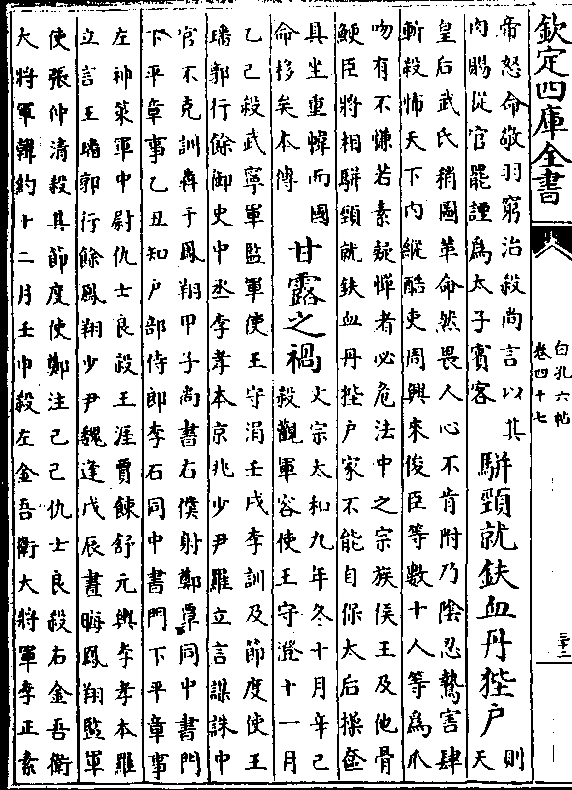 欽定四庫全書
白孔六帖
卷四十七
三十二
帝怒命敬羽窮治殺尚言以其
肉賜從官罷諲為太子賓客
駢頸就鈇血丹狴户
則
天
皇后武氏稍圖革命然畏人心不肯附乃陰忍鷙害肆
斬殺怖天下内縱酷吏周興來俊臣等數十人等為爪
吻有不慊若素疑憚者必危法中之宗族侯王及他骨
鯁臣將相駢頸就鈇血丹狴户家不能自保太后操奩
具坐重幃而國
命移矣本傳
甘露之禍
文宗太和九年冬十月辛己
殺觀軍容使王守澄十一月
乙己殺武寧軍監軍使王守涓壬戌李訓及節度使王
璠郭行餘御史中丞李孝本京兆少尹羅立言謀誅中
官不克訓犇于鳳翔甲子尚書右僕射鄭覃同中書門
下平章事乙丑知户部侍郎李石同中書門下平章事
左神策軍中尉仇士良殺王涯賈餗舒元輿李孝本羅
立言王璠郭行餘鳳翔少尹魏逢戊辰晝晦鳳翔監軍
使張仲清殺其節度使鄭注己己仇士良殺右金吾衛
大將軍韓約十二月壬申殺左金吾衛大將軍李正素